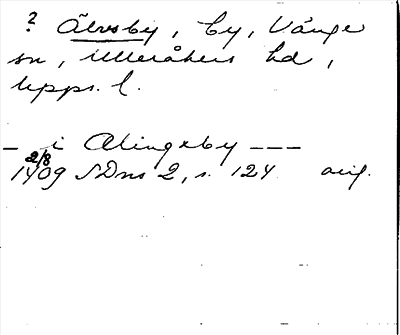 ? Älvsby, by, Vänge
sn, Ulleråkers hd,
Upps. l.
_ i Alingxby ---
2/8
1409 SDns 2, s. 124 orig.